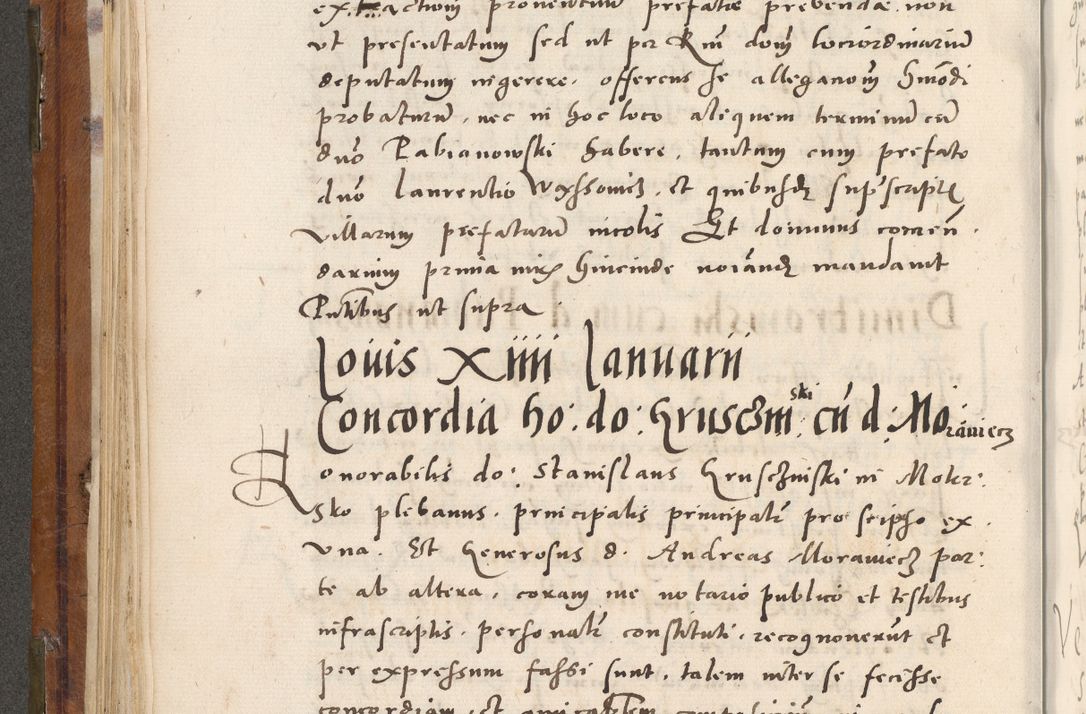 ex actiom proventum prefatae prebendae non
ut presentatum sed ut per Rm dom locordinariu
deputatum ingerere. offerens se alleganom hmodi
probaturu. nec in hoc loco aliquem terminu cu
dno Pabianowski habere. tantum cum prefato
dno Laurentio Wgssowicz. et quibusdz supscriptz
villarum prefataru incolis Et dominus comen
darium prima mix hincinde noiandz mandavit
Pntibus ut supra
Jovis XIIII Januarii
Concordia ho: do: Gruszin: ski cu d: Morawiecz
Honorabilis do: Stanislaus Gruszinski in Mokr:
sko plebanus. principalis principalr pro seipso ex
una. Et Generosus d. Andreas Morawiecz par:
te ab altera, coram me notario publico et testibus
infrascriptis. personalr constituti. recognoverut et
per expressum fassi sunt. talem inter se fecisse
concordiam. et amicabilem